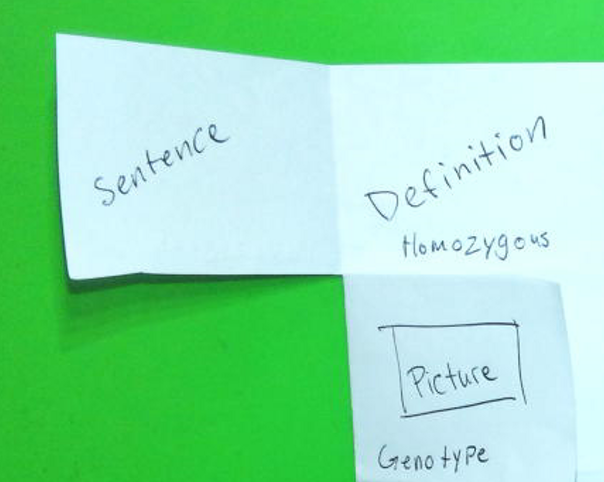 Sentence
Definition
Homozygous
Picture
Genotype